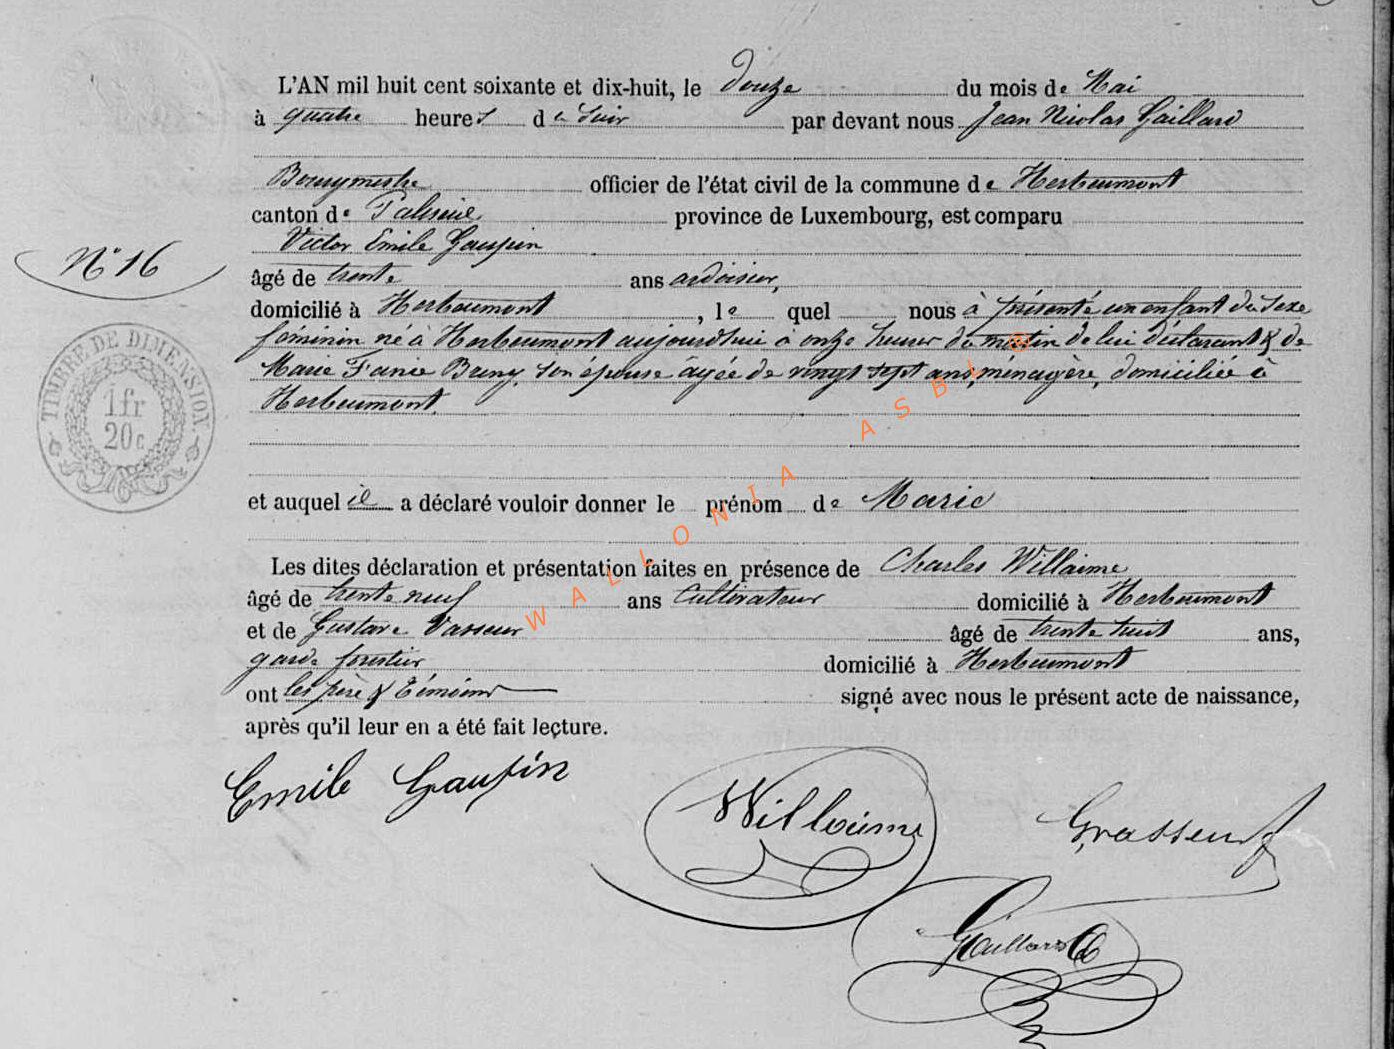 L'AN mil huit cent soixante et dix-huit, le douze du mois de Mai
à quatre heures du soir par devant nous Jean Nicolas Gaillard
Bourgmestre officier de l'état civil de la commune de Herbeumont
canton de Paliseul, province de Luxembourg, est comparu
Victor Emile Gaupin
N° 16
âgé de trente ans ardoisier,
domicilié à Herbeumont, le quel nous à présenté un enfant du sexe
féminin né à Herbeumont aujourd'hui à onze heures du matin de lui déclarant & de
Marie Brincy, son épouse âgée de vingt sept ans, ménagère, domiciliée à
Herbeumont.
TIMBRE DE DIMENSION
1fr
20c
et auquel il a déclaré vouloir donner le prénom de Marie
Les dites déclaration et présentation faites en présence de Charles Willaime
âgé de trente neuf ans cultivateur domicilié à Herbeumont
et de Gustave Vasseur âgé de trente huit ans,
garde forestier domicilié à Herbeumont
ont les père & témoins signé avec nous le présent acte de naissance,
après qu'il leur en a été fait lecture.
Emile Gaupin
Willaime
Gaillard
WALLONIA ASBL ®